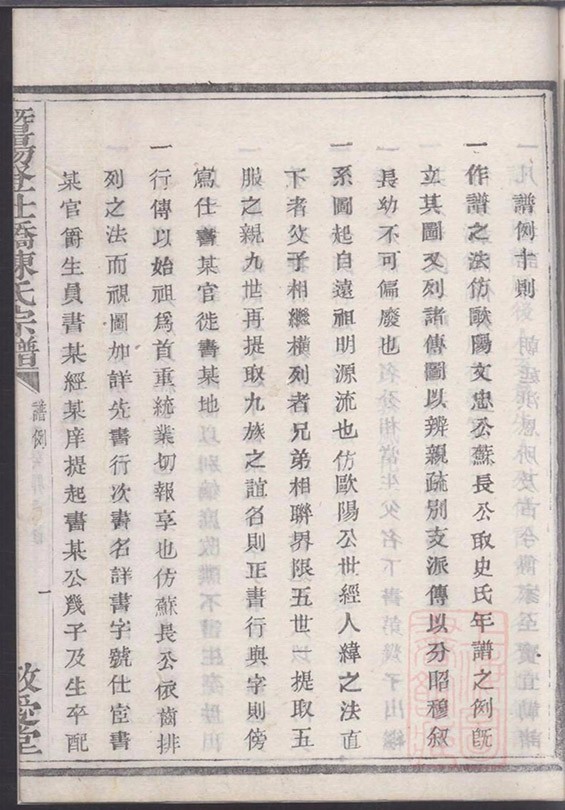 譜例十則
一作譜之法仿歐陽文忠公蘇長公取史氏年譜之例既
立其圖又列諸傳圖以辨親疏別支派傳以分昭穆叙
長幼不可偏廢也
一系圖起自遠祖明源流也仿歐陽公世經人緯之法直
下者父子相繼橫列者兄弟相聯界限五世以提取五
服之親九世再提取九族之誼名則正書行與字則傍
寫仕書某官徙書某地
一行傳以始祖爲首重統業切報享也仿蘇長公依齒排
列之法而視圖加詳先書行次書名詳書字號仕宦書
某官爵生員書某經某庠提起書某公幾子及生卒配
暨陽登仕橋陳氏宗譜
譜例
一
敬愛堂